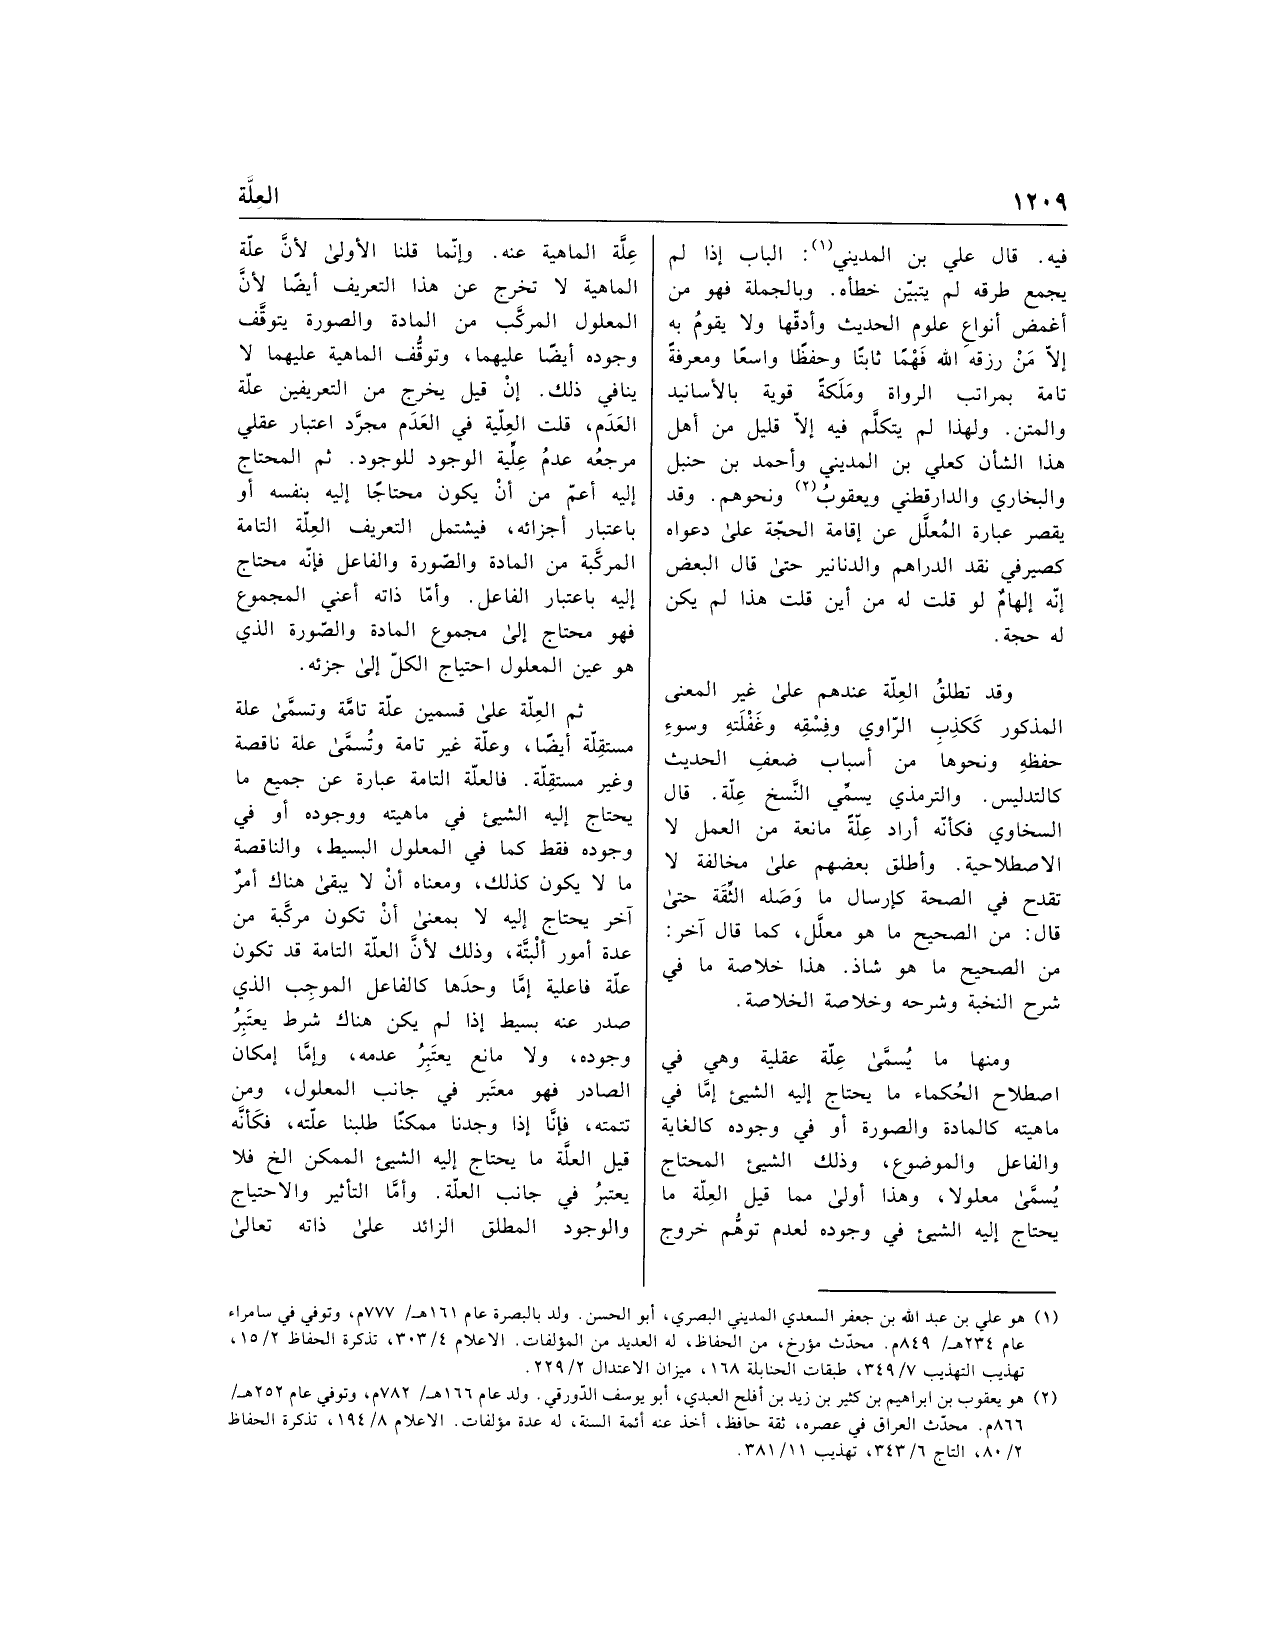 ١٢٠٩
العِلَّة
فيه. قال علي بن المديني(١): الباب إذا لم
يجمع طرقه لم يتبيّن خطأه. وبالجملة فهو من
أغمض أنواعِ علوم الحديث وأدقّها ولا يقومُ به
إلاّ مَنْ رزقه الله فَهْمًا ثابتًا وحفظًا واسعًا ومعرفةً
تامة بمراتب الرواة ومَلَكةً قوية بالأسانيد
والمتن. ولهذا لم يتكلَّم فيه إلاّ قليل من أهل
هذا الشأن كعلي بن المديني وأحمد بن حنبل
والبخاري والدارقطني ويعقوبُ(٢) ونحوهم. وقد
يقصر عبارة المُعلَّل عن إقامة الحجّة علىٰ دعواه
كصيرفي نقد الدراهم والدنانير حتىٰ قال البعض
إنّه إلهامٌ لو قلت له من أين قلت هذا لم يكن
له حجة.
وقد تطلقُ العِلّة عندهم علىٰ غير المعنى
المذكور كَكذِبِ الرّاوي وفِسْقِه وغَفْلَتهِ وسوءِ
حفظهِ ونحوها من أسباب ضعفِ الحديث
كالتدليس. والترمذي يسمِّي النَّسخ عِلّة. قال
السخاوي فكأنّه أراد عِلّةً مانعة من العمل لا
الاصطلاحية. وأطلق بعضهم علىٰ مخالفة لا
تقدح في الصحة كإرسال ما وَصَله الثِّقَة حتىٰ
قال: من الصحيح ما هو معلَّل، كما قال آخر:
من الصحيح ما هو شاذ. هذا خلاصة ما في
شرح النخبة وشرحه وخلاصة الخلاصة.
ومنها ما يُسمَّىٰ عِلّة عقلية وهي في
اصطلاح الحُكماء ما يحتاج إليه الشيئ إمَّا في
ماهيته كالمادة والصورة أو في وجوده كالغاية
والفاعل والموضوع، وذلك الشيئ المحتاج
يُسمَّىٰ معلولا، وهذا أولىٰ مما قيل العِلّة ما
يحتاج إليه الشيئ في وجوده لعدم توهُّم خروج
عِلَّة الماهية عنه. وإنّما قلنا الأولىٰ لأنَّ علّة
الماهية لا تخرج عن هذا التعريف أيضًا لأنَّ
المعلول المركَّب من المادة والصورة يتوقَّف
وجوده أيضًا عليهما، وتوقُّف الماهية عليهما لا
ينافي ذلك. إنْ قيل يخرج من التعريفين علّة
العَدَم، قلت العِلّية في العَدَم مجرَّد اعتبار عقلي
مرجعُه عدمُ عِلِّية الوجود للوجود. ثم المحتاج
إليه أعمّ من أنْ يكون محتاجًا إليه بنفسه أو
باعتبار أجزائه، فيشتمل التعريف العِلّة التامة
المركَّبة من المادة والصّورة والفاعل فإنّه محتاج
إليه باعتبار الفاعل. وأمّا ذاته أعني المجموع
فهو محتاج إلىٰ مجموع المادة والصّورة الذي
هو عين المعلول احتياج الكلّ إلىٰ جزئه.
ثم العِلّة علىٰ قسمين علّة تامَّة وتسمَّىٰ علة
مستقِلّة أيضًا، وعلّة غير تامة وتُسمَّىٰ علة ناقصة
وغير مستقِلّة. فالعلّة التامة عبارة عن جميع ما
يحتاج إليه الشيئ في ماهيته ووجوده أو في
وجوده فقط كما في المعلول البسيط، والناقصة
ما لا يكون كذلك، ومعناه أنْ لا يبقىٰ هناك أمرٌ
آخر يحتاج إليه لا بمعنىٰ أنْ تكون مركَّبة من
عدة أمور ألْبتَّة، وذلك لأنَّ العلّة التامة قد تكون
علّة فاعلية إمَّا وحدَها كالفاعل الموجِب الذي
صدر عنه بسيط إذا لم يكن هناك شرط يعتَبِرُ
وجوده، ولا مانع يعتَبِرُ عدمه، وإمَّا إمكان
الصادر فهو معتَبر في جانب المعلول، ومن
تتمته، فإنَّا إذا وجدنا ممكنًا طلبنا علّته، فكَأنَّه
قيل العلَّة ما يحتاج إليه الشيئ الممكن الخ فلا
يعتبرُ في جانب العلّة. وأمَّا التأثير والاحتياج
والوجود المطلق الزائد علىٰ ذاته تعالىٰ
(١) هو علي بن عبد الله بن جعفر السعدي المديني البصري، أبو الحسن. ولد بالبصرة عام ١٦١هـ/ ٧٧٧م، وتوفي في سامراء
عام ٢٣٤هـ/ ٨٤٩م. محدّث مؤرخ، من الحفاظ، له العديد من المؤلفات. الاعلام ٤/ ٣٠٣، تذكرة الحفاظ ٢/ ١٥،
تهذيب التهذيب ٧/ ٣٤٩، طبقات الحنابلة ١٦٨، ميزان الاعتدال ٢/ ٢٢٩.
(٢) هو يعقوب بن ابراهيم بن كثير بن زيد بن أفلح العبدي، أبو يوسف الدّورقي. ولد عام ١٦٦هـ/ ٧٨٢م، وتوفي عام ٢٥٢هـ/
٨٦٦م. محدّث العراق في عصره، ثقة حافظ، أخذ عنه أئمة السنة، له عدة مؤلفات. الاعلام ٨/ ١٩٤، تذكرة الحفاظ
٢/ ٨٠، التاج ٦/ ٣٤٣، تهذيب ١١/ ٣٨١.